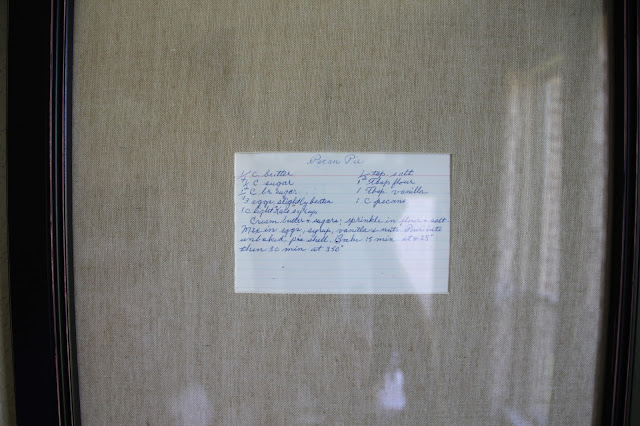 Pecan Pie
C. butter tsp. salt
C sugar 1 Tbsp flour
C br sugar 1 Tbsp. vanilla
3 eggs slightly beaten 1 C pecans
1 C light Karo syrup
Cream butter & sugars; sprinkle in flour & salt
Mix in eggs, syrup, vanilla & nuts. Pour into
unbaked pie shell. Bake 15 min at 425°
then 30 min at 350°